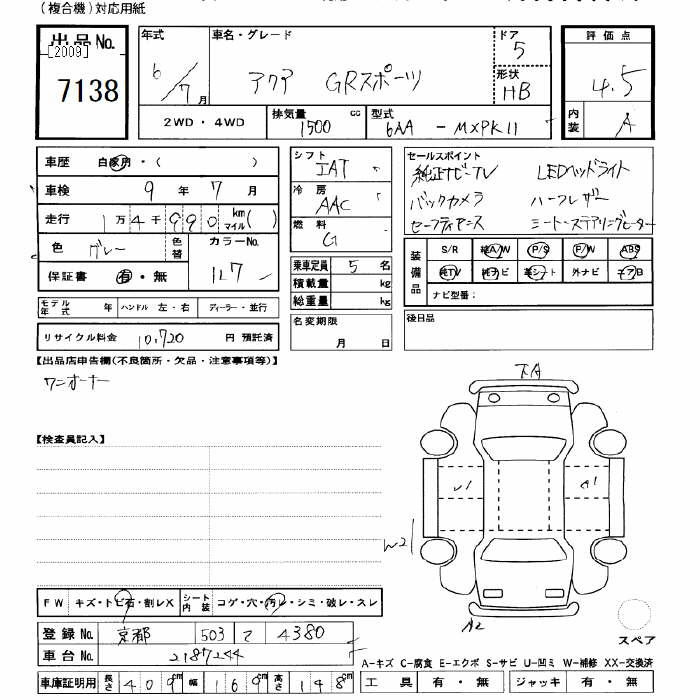 (複合機)対応用紙
出品No.
[2009]
7138
年式
6/7月
車名・グレード
アクア GRスポーツ
ドア
5
形状
HB
評価点
4.5
内装
A
2WD・4WD
排気量
1500 CC
型式
6AA - MXPK11
車歴 自家用・( )
車検 9年7月
走行 1万4千990km(マイル)
色 グレー
色替
カラーNo.
1L7
保証書 有・無
シフト
IAT
冷房
AAC
燃料
G
乗車定員 5名
積載量 kg
総重量 kg
名変期限
月 日
セールスポイント
純正ナビ-TV LEDヘッドライト
バックカメラ ハーフレザー
セーフティセンス シートステアリングヒーター
装備品
S/R 純A/W P/S P/W ABS
純TV 純ナビ 革シート 外ナビ エアB
ナビ型番:
後日品
モデル年式 年 ハンドル 左・右 ディーラー・並行
リサイクル料金 10,720 円 預託済
【出品店申告欄(不良箇所・欠品・注意事項等)】
ワンオーナー
【検査員記入】
下A
U1
A1
W21
A2
スペア
FW キズ・トビ石・割レX
シート内装 コゲ・穴・汚レ・シミ・破レ・スレ
登録No. 京都 503 て 4380
車台No. 2187244
車庫証明用 長さ 409cm 幅 169cm 高さ 148cm
A-キズ C-腐食 E-エクボ S-サビ U-凹ミ W-補修 XX-交換済
工具 有・無 ジャッキ 有・無